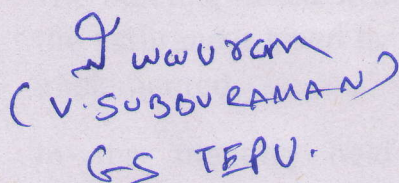 (V. SUBBURAMAN)
GS TEPU.